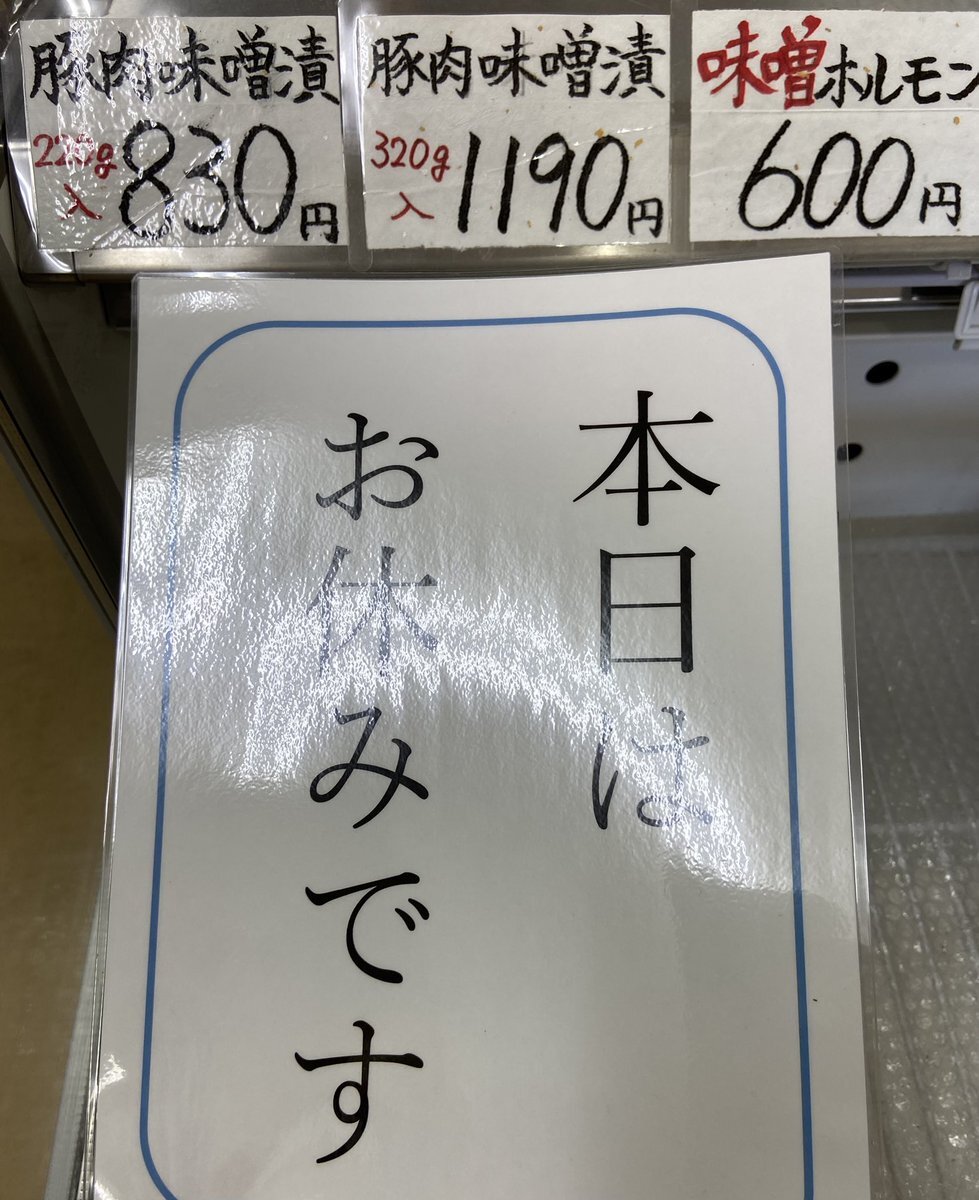 豚肉味噌漬
220g入
830円
豚肉味噌漬
320g入
1190円
味噌ホルモン
600円
本日は
お休みです